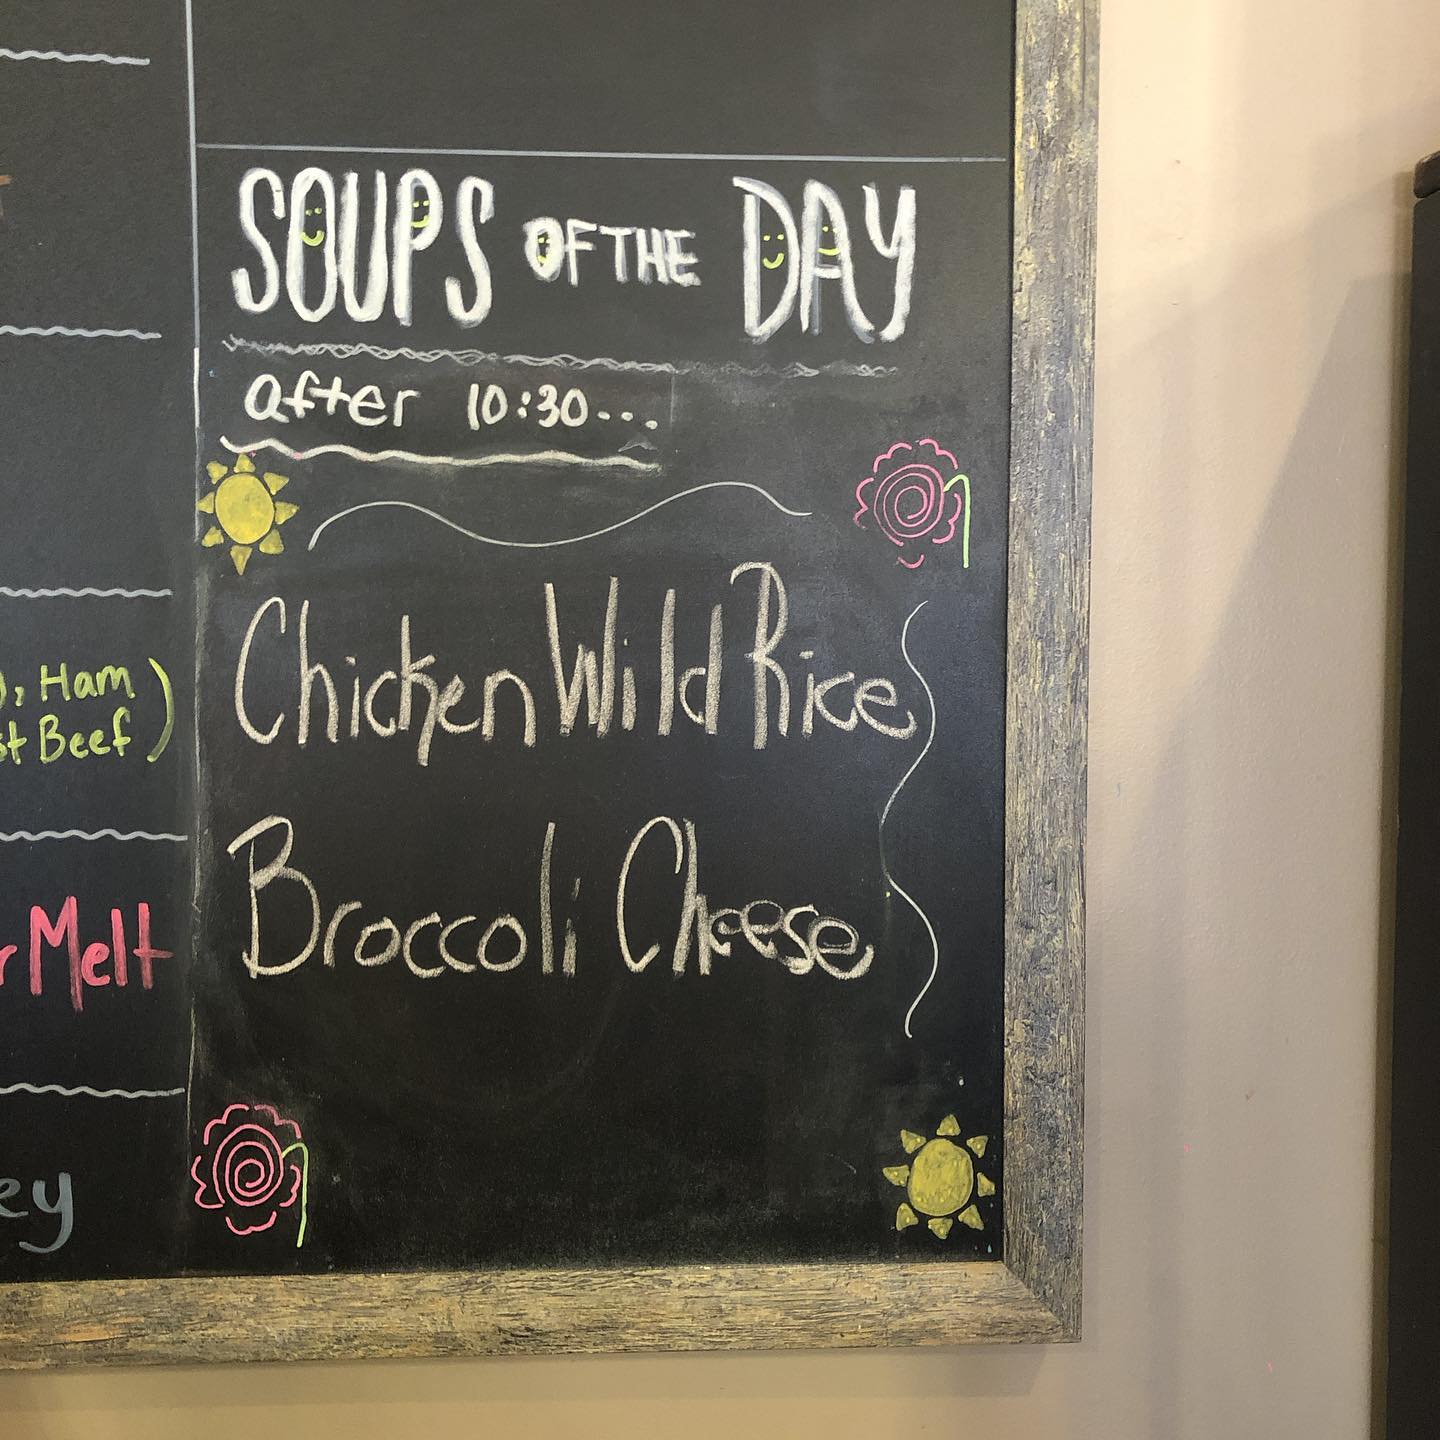 SOUPS OF THE DAY
after 10:30...
Chicken Wild Rice
Broccoli Cheese
, Ham
Beef)
Melt